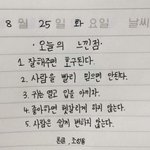 8 월 25일 화요일 날씨
오늘의 느낀점
1. 잘해주면 호구된다.
2. 사람을 빨리 믿으면 안된다.
3. 귀는 열고 입은 아끼자.
4. 좋아하면 헷갈리게 하지 않는다.
5. 사람은 쉽게 변하지 않는다.